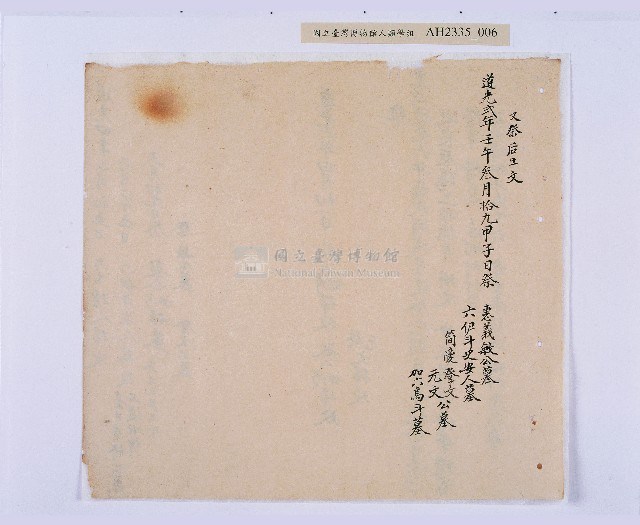 國立臺灣博物館人類學組 AH2335_006
又祭后土文
道光弍年壬午叁月拾九甲子日祭
惠義敏公墓
六伊斗史安人墓
簡慶登文公墓
元文
加六烏斗墓
國立臺灣博物館
National Taiwan Museum